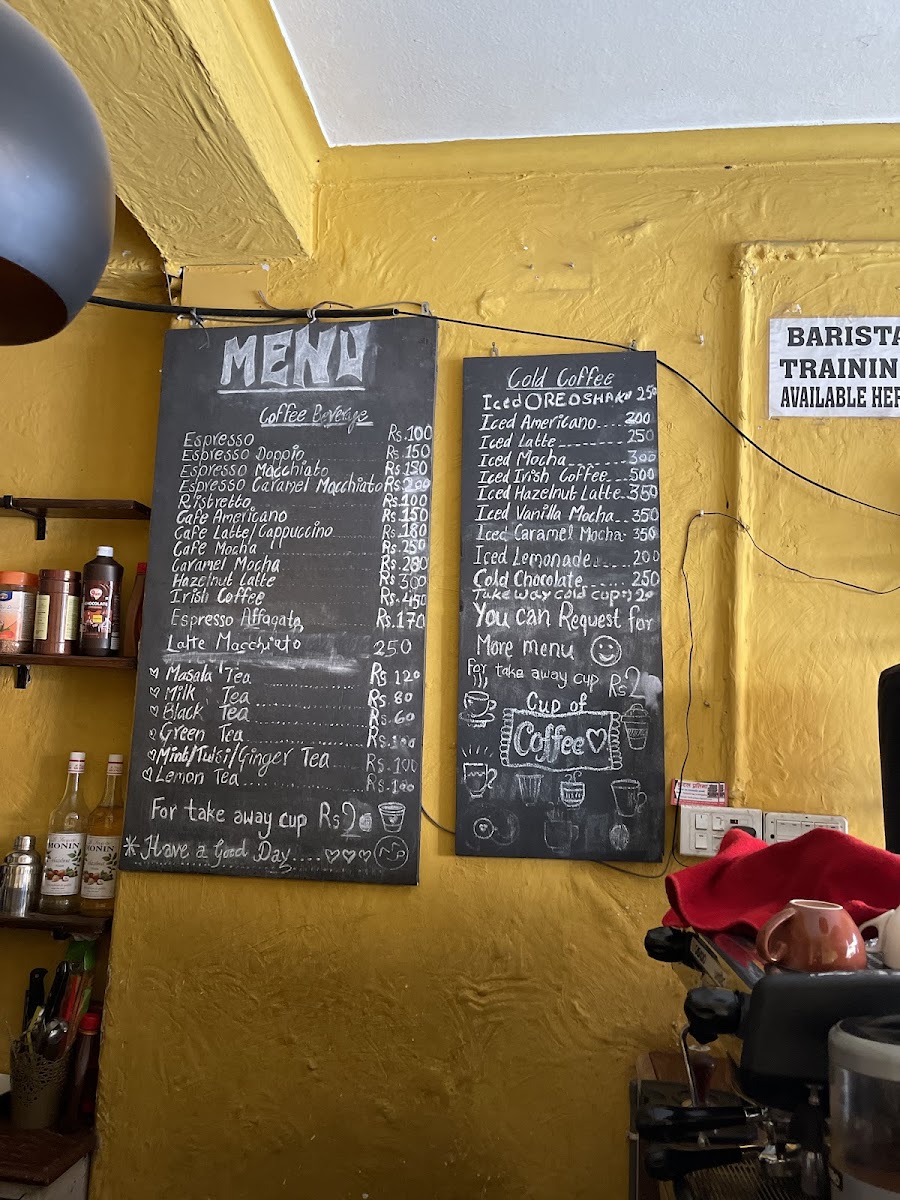 MENU
Coffee Beverage
Espresso Rs.100
Espresso Doppio Rs.150
Espresso Macchiato Rs.150
Espresso Caramel Macchiato Rs.200
Ristretto Rs.100
Cafe Americano Rs.150
Cafe Latte/Cappuccino Rs.180
Cafe Mocha Rs.250
Caramel Mocha Rs.280
Hazelnut Latte Rs.300
Irish Coffee Rs.450
Espresso Affagato Rs.170
Latte Macchiato 250
Masala Tea Rs.120
Milk Tea Rs.80
Black Tea Rs.60
Green Tea Rs.100
Mint/Tulsi/Ginger Tea Rs.100
Lemon Tea Rs.100
For take away cup Rs20
* Have a Good Day....
Cold Coffee
Iced OREOSHAKE 250
Iced Americano 200
Iced Latte 250
Iced Mocha 300
Iced Irish Coffee 500
Iced Hazelnut Latte 350
Iced Vanilla Mocha 350
Iced Caramel Mocha 350
Iced Lemonade 200
Cold Chocolate 250
Take way cold cup 20
You can Request for
More menu
For take away cup Rs2
Cup of
Coffee
BARISTA
TRAININ
AVAILABLE HER
CHOCOLATE
MONIN
MONIN